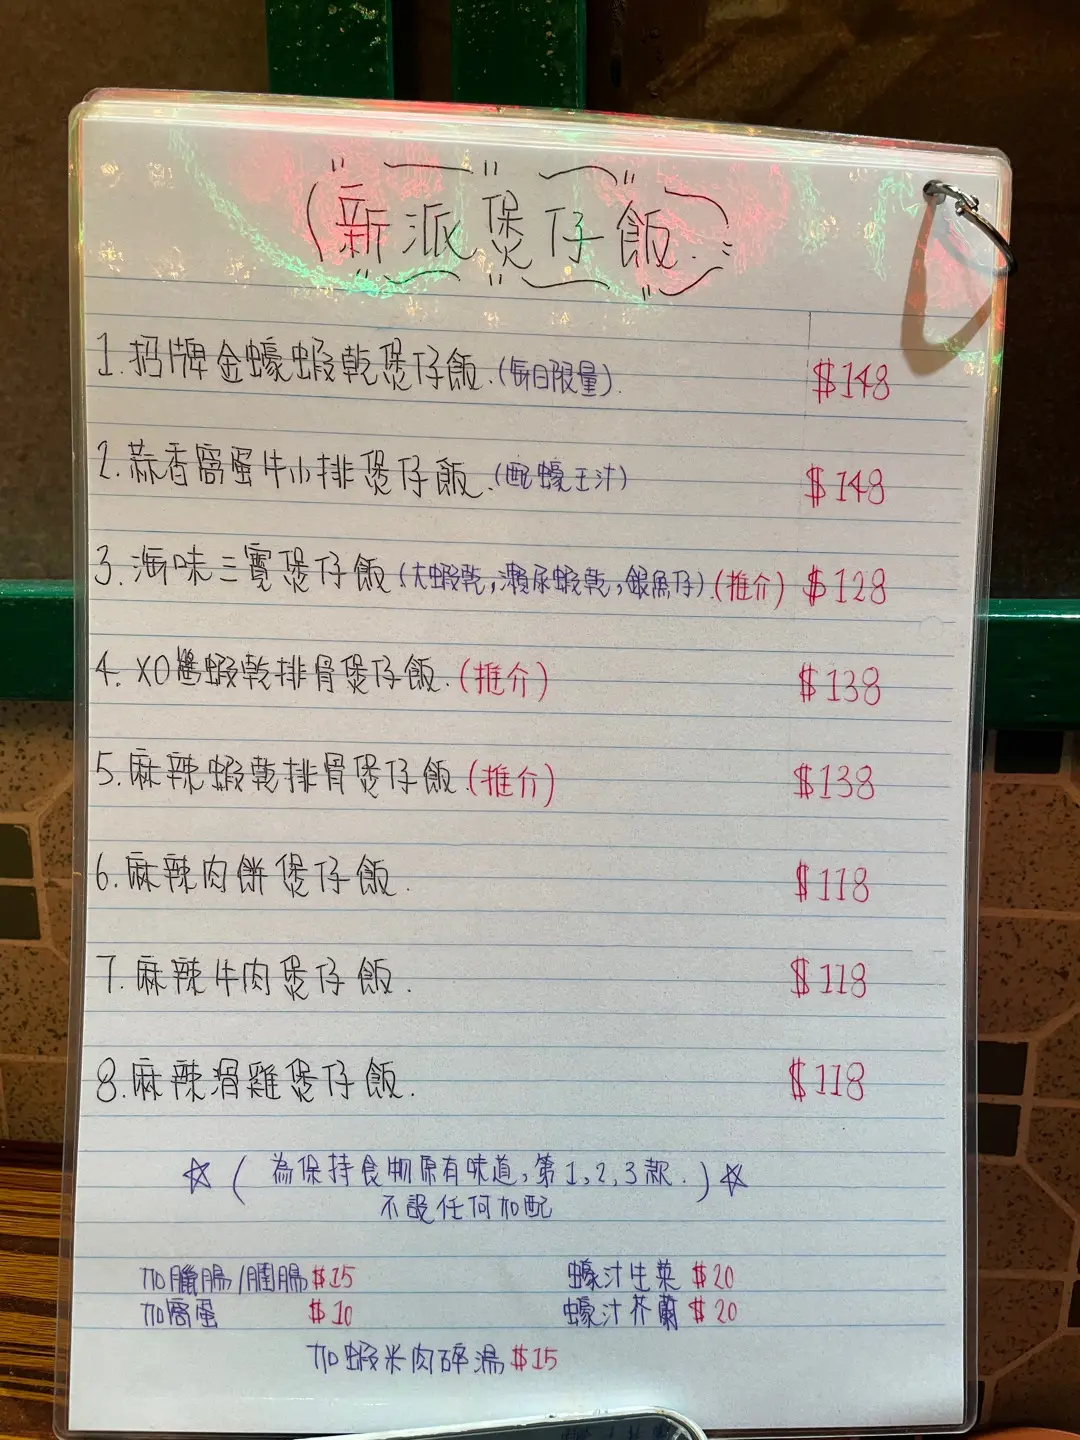 新派煲仔飯
1.招牌金蠔蝦乾煲仔飯.(每日限量). $148
2.蒜香窩蛋牛小排煲仔飯.(配蠔王汁) $148
3.海味三寶煲仔飯(大蝦乾,瀨尿蝦乾,銀魚仔).(推介) $128
4.XO醬蝦乾排骨煲仔飯.(推介) $138
5.麻辣蝦乾排骨煲仔飯.(推介) $138
6.麻辣肉餅煲仔飯. $118
7.麻辣牛肉煲仔飯. $118
8.麻辣滑雞煲仔飯. $118
☆(為保持食物原有味道,第1,2,3款.)☆
不設任何加配
加臘腸/膶腸$15 蠔汁生菜 $20
加窩蛋 $10 蠔汁芥蘭 $20
加蝦米肉碎湯$15